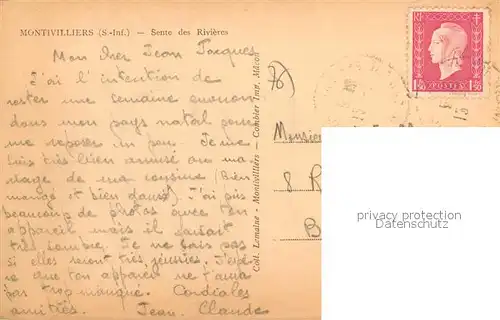 MONTIVILLIERS (S.-Inf.) — Sente des Rivières
Mon cher Jean Jacques
J'ai l'intention de
rester une semaine environ
dans mon pays natal pour
me reposer un peu. Je me
suis très bien amusé au ma-
riage de ma cousine (Bien
mangé et bien dansé) J'ai pris
beaucoup de photos avec ton
appareil mais il faisait
très sombre. Je ne sais pas
si elles seront très jeunies. J'espè-
re que ton appareil ne t'aura
pas trop manqué. Cordiales
amitiés. Jean Claude
Coll. Lemaine - Montivilliers — Combier Imp. Mâcon
RF
1F50 POSTES 1F50
Monsieur
8 R
privacy protection
Datenschutz